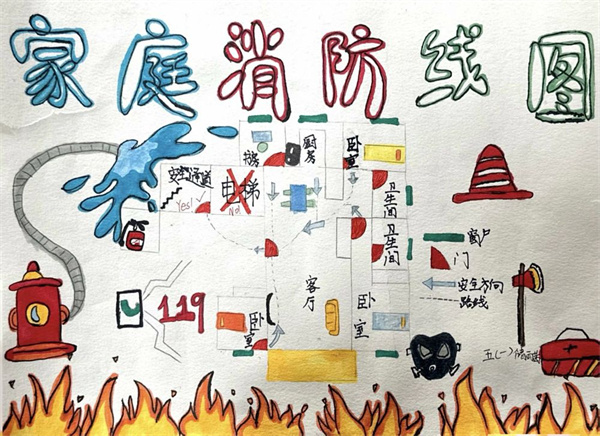 家庭消防线图
书房
厨房
卧室
安全通道
Yes!
电梯
No!
卫生间
卫生间
窗户
门
安全方向
路线
客厅
卧室
卧室
119
五(一)